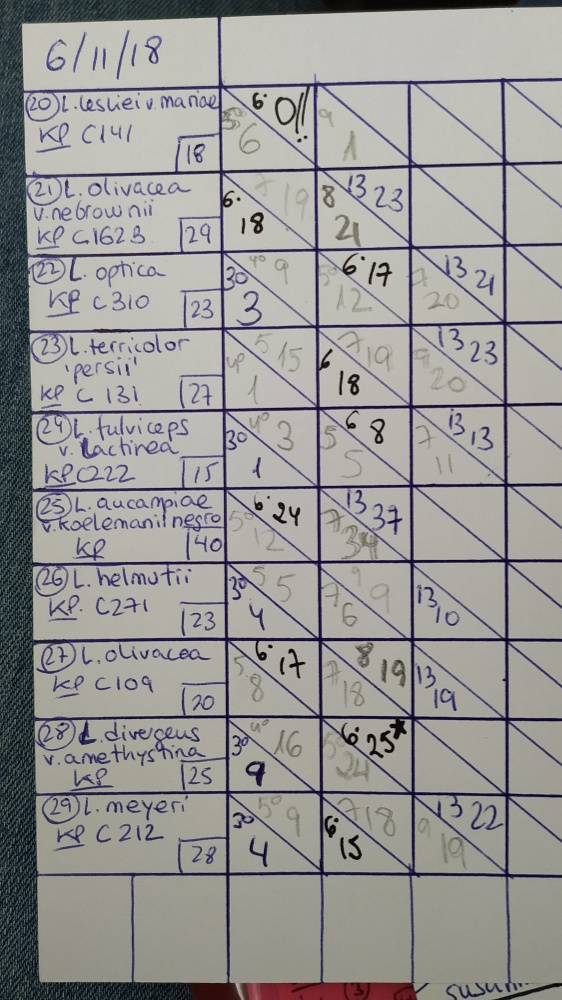 6/11/18
20 L. lesliei v. mariae
KP C141
18
6· 0!!
5° 6
9
1
21 L. olivacea
v. nebrownii
KP C162B
29
7 19
6· 18
8 13 23
21
22 L. optica
KP C310
23
4° 9
3° 3
6· 17
5° 12
13 21
7 20
23 L. terricolor
'persii'
KP C 131
27
5 15
4° 1
7 19
6 18
13 23
9 20
24 L. fulviceps
v. lactinea
KP C222
15
4° 3
3° 1
6 8
5 5
13 13
7 11
25 L. aucampiae
v. koelemanii negro
KP
40
6· 24
5° 12
13 37
7 34
26 L. helmutii
KP. C271
23
5 5
3° 4
9 9
7 6
13 10
27 L. olivacea
KP C109
20
6· 17
5 8
8 19
7 18
13 19
28 L. divergens
v. amethystina
KP
25
4° 16
3° 9
6· 25*
5° 24
29 L. meyeri
KP C212
28
5° 9
3° 4
7 18
6· 15
13 22
9 19